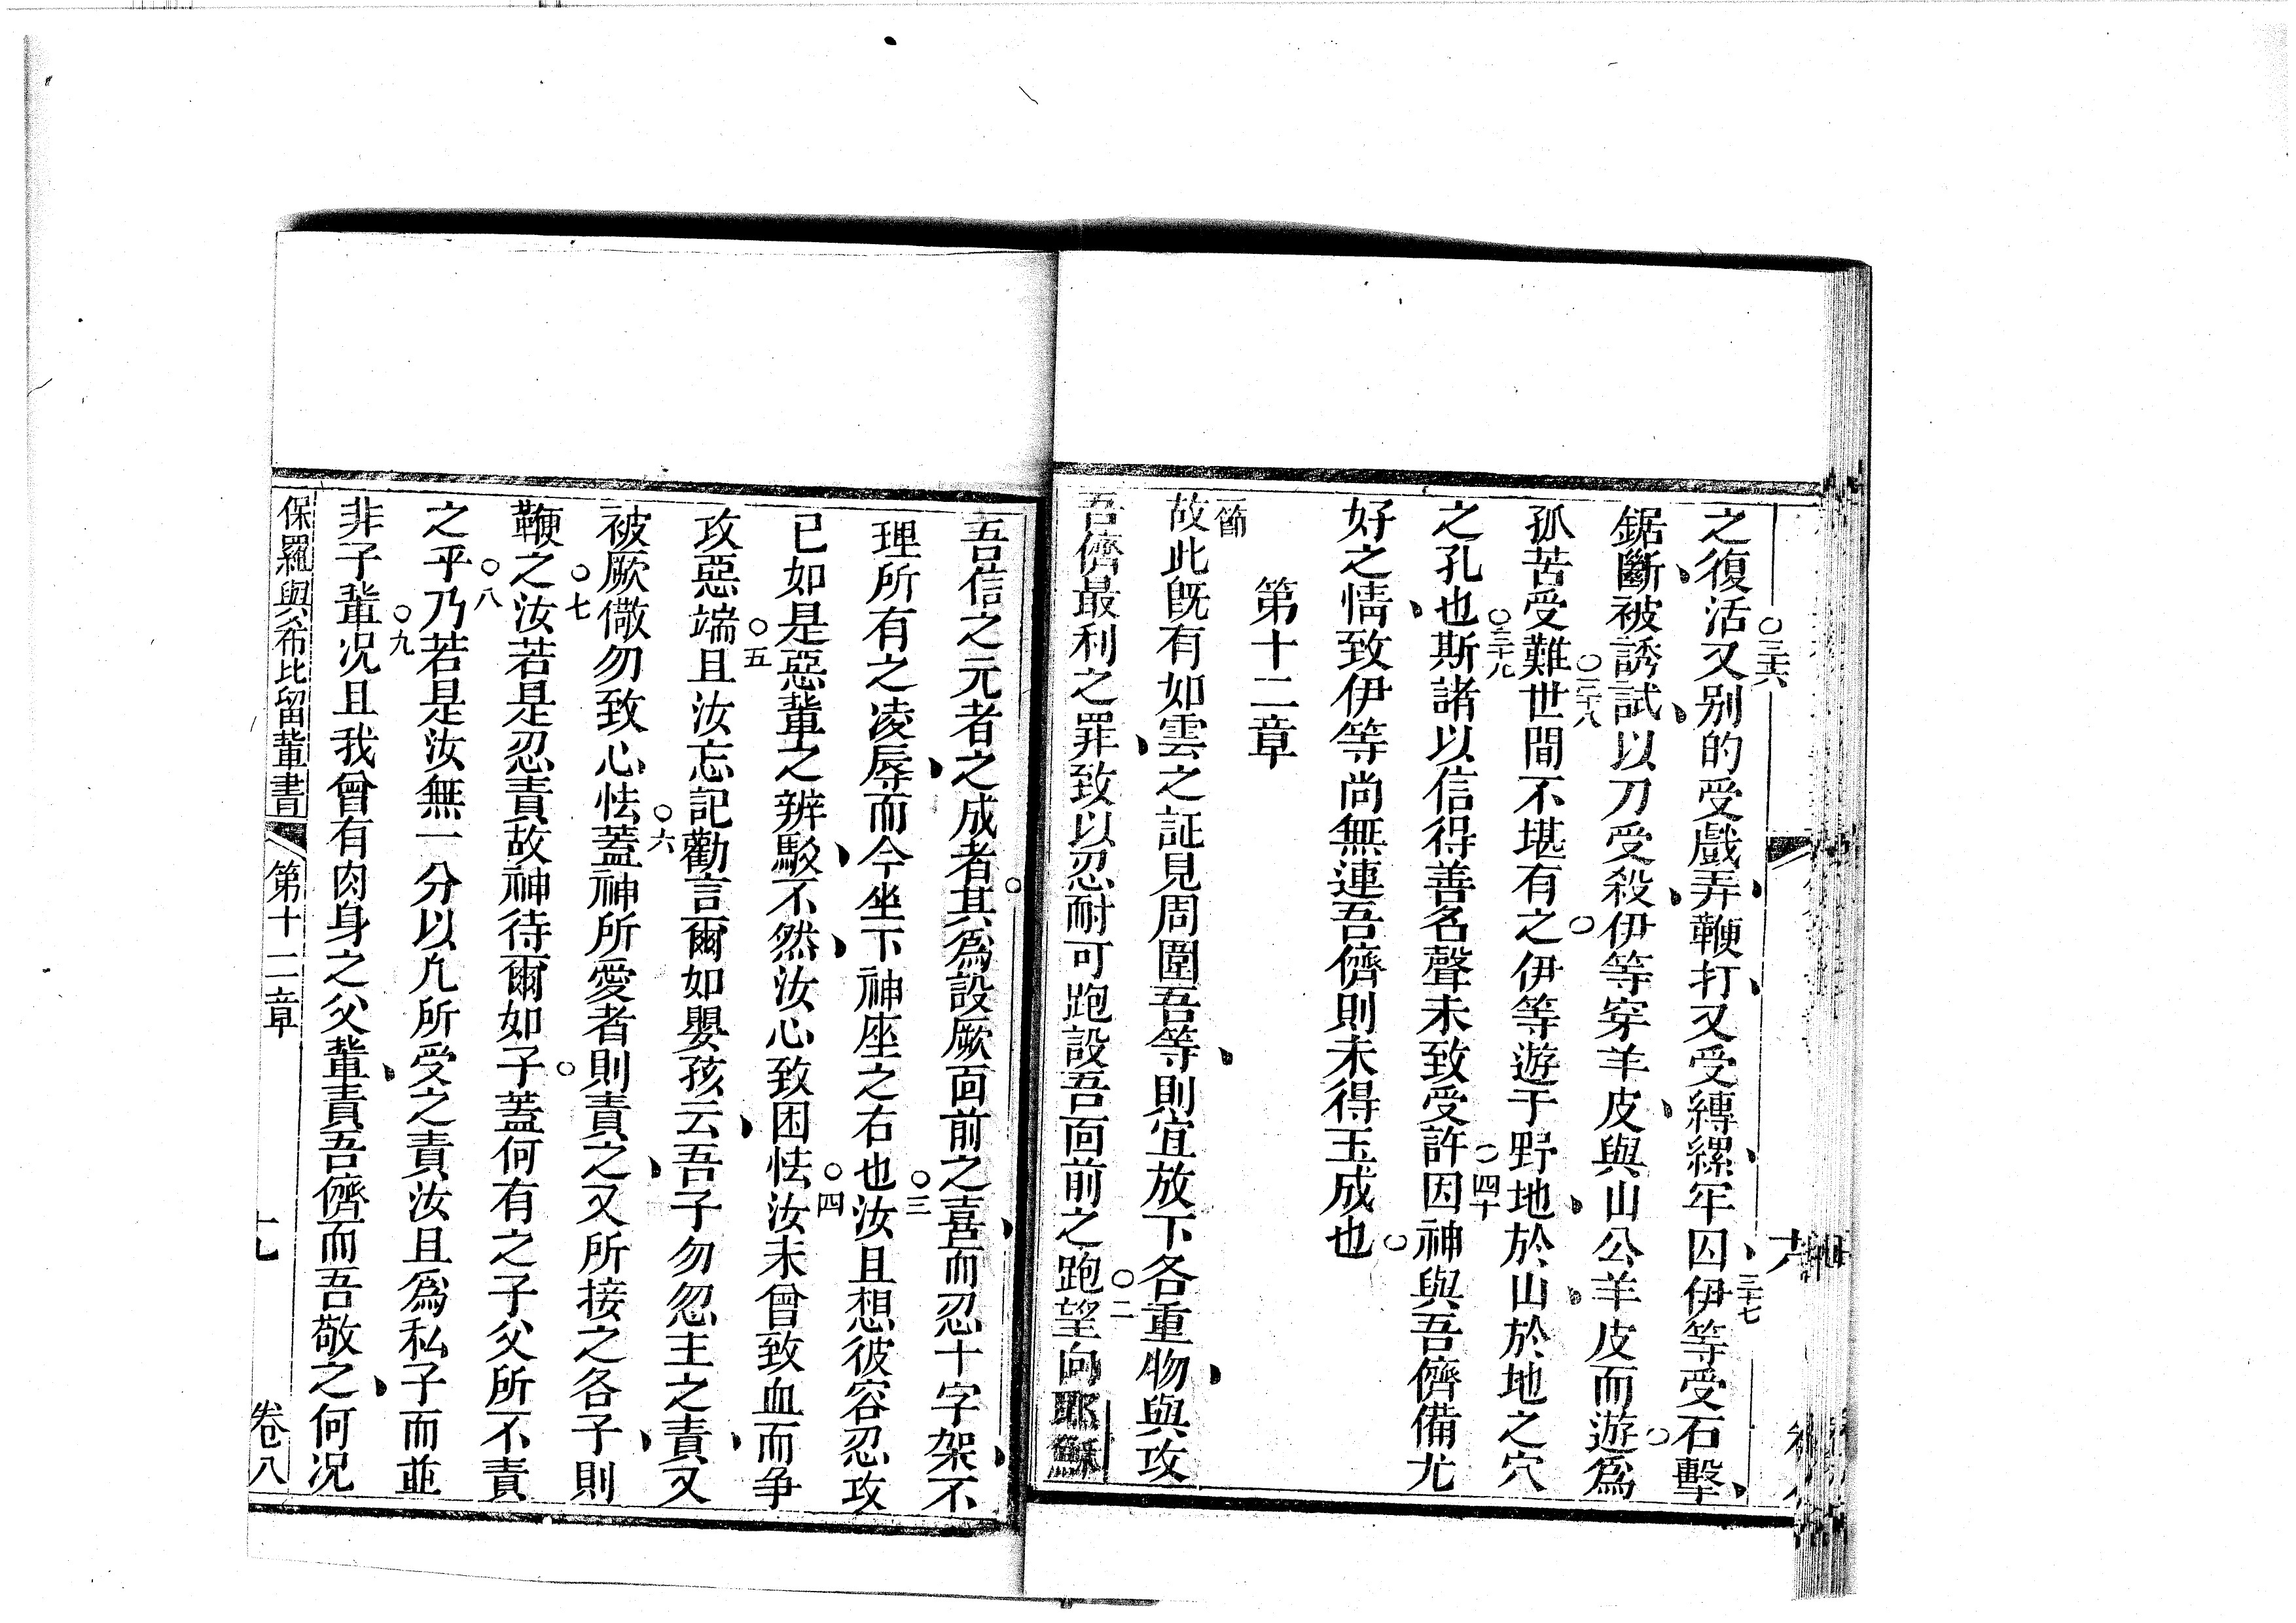 之復活又别的受戲弄鞭打又受縛縲牢囚伊等受石擊
○三十六
三十七
鋸斷被誘試以刀受殺伊等穿羊皮與山公羊皮而遊爲
孤苦受難世間不堪有之伊等遊于野地於山於地之穴
○三十八
之孔也斯諸以信得善名聲未致受許因神與吾儕備尤
○三十九
○四十
好之情致伊等尚無連吾儕則未得玉成也
第十二章
一節
故此既有如雲之証見周圍吾等則宜放下各重物與攻
吾儕最利之罪致以忍耐可跑設吾面前之跑望向耶穌
○二
吾信之元者之成者其爲設厥面前之喜而忍十字架不
理所有之凌辱而今坐下神座之右也汝且想彼容忍攻
○三
已如是惡輩之辨駁不然汝心致困怯汝未曾致血而争
○四
攻惡端且汝忘記勸言爾如嬰孩云吾子勿忽主之責又
○五
被厥儆勿致心怯蓋神所愛者則責之又所接之各子則
○六
鞭之汝若是忍責故神待爾如子蓋何有之子父所不責
○七
之乎乃若是汝無一分以凢所受之責汝且爲私子而並
○八
非子輩况且我曾有肉身之父輩責吾儕而吾敬之何况
○九
保羅與希比留輩書 第十二章 卷八